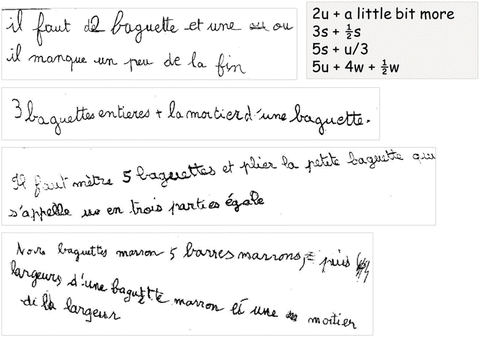 il faut 2 baguette et une ou
il manque un peu de la fin
2u + a little bit more
3s + ½s
5s + u/3
5u + 4w + ½w
3 baguettes entieres + la mortier d'une baguette.
Il faut mètre 5 baguettes et plier la petite baguette qui
s'appelle u en trois parties égale
baguettes marron 5 barres marrons, puis
largeurs d'une baguette marron et une moitier
di la largeur